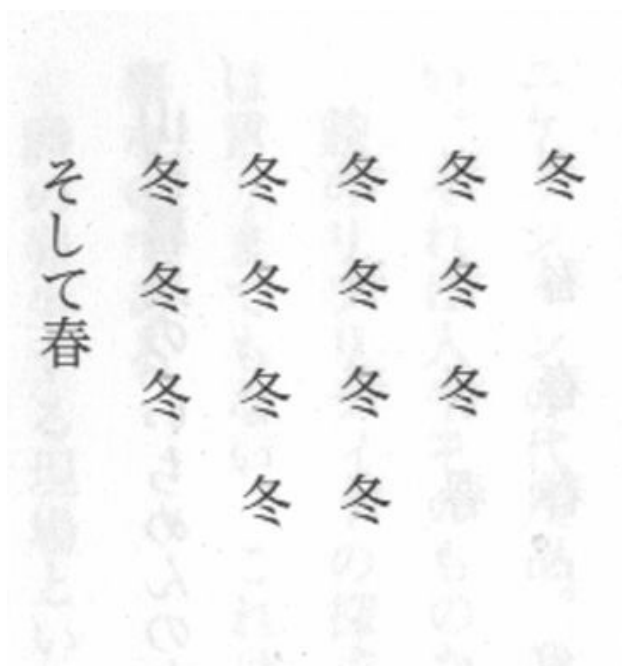 冬
冬冬冬
冬冬冬冬
冬冬冬冬
冬冬冬
そして春